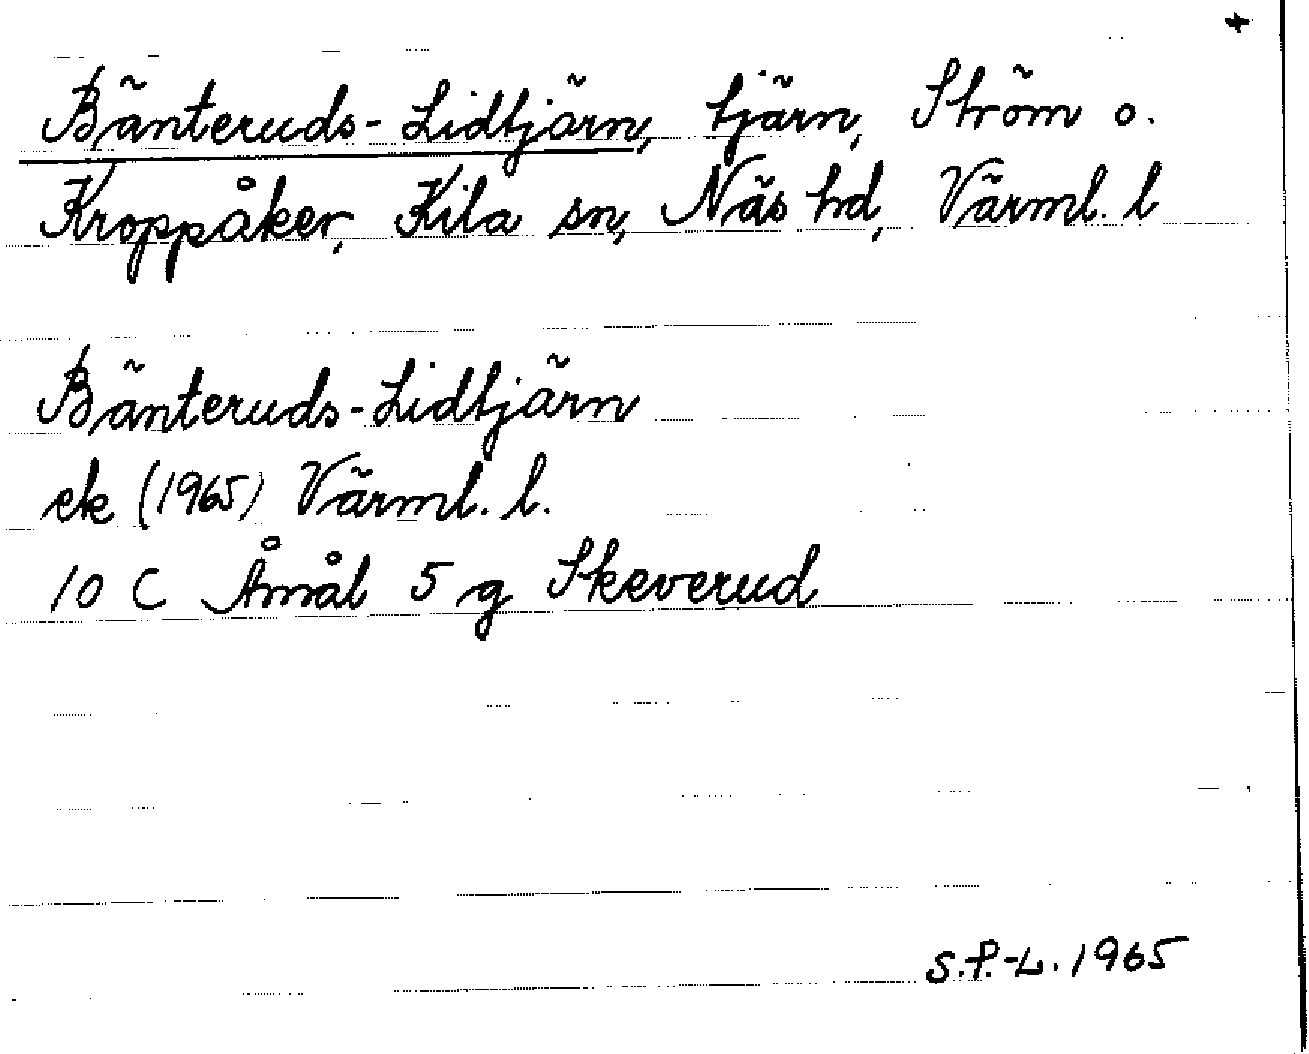 +
Bänteruds-Lidtjärn, tjärn, Ström o.
Kroppåker, Kila sn, Näs hd, Värml. l
Bänteruds-Lidtjärn
ek (1965) Värml. l.
10 C Åmål 5 g Skeverud
S.P.-L. 1965